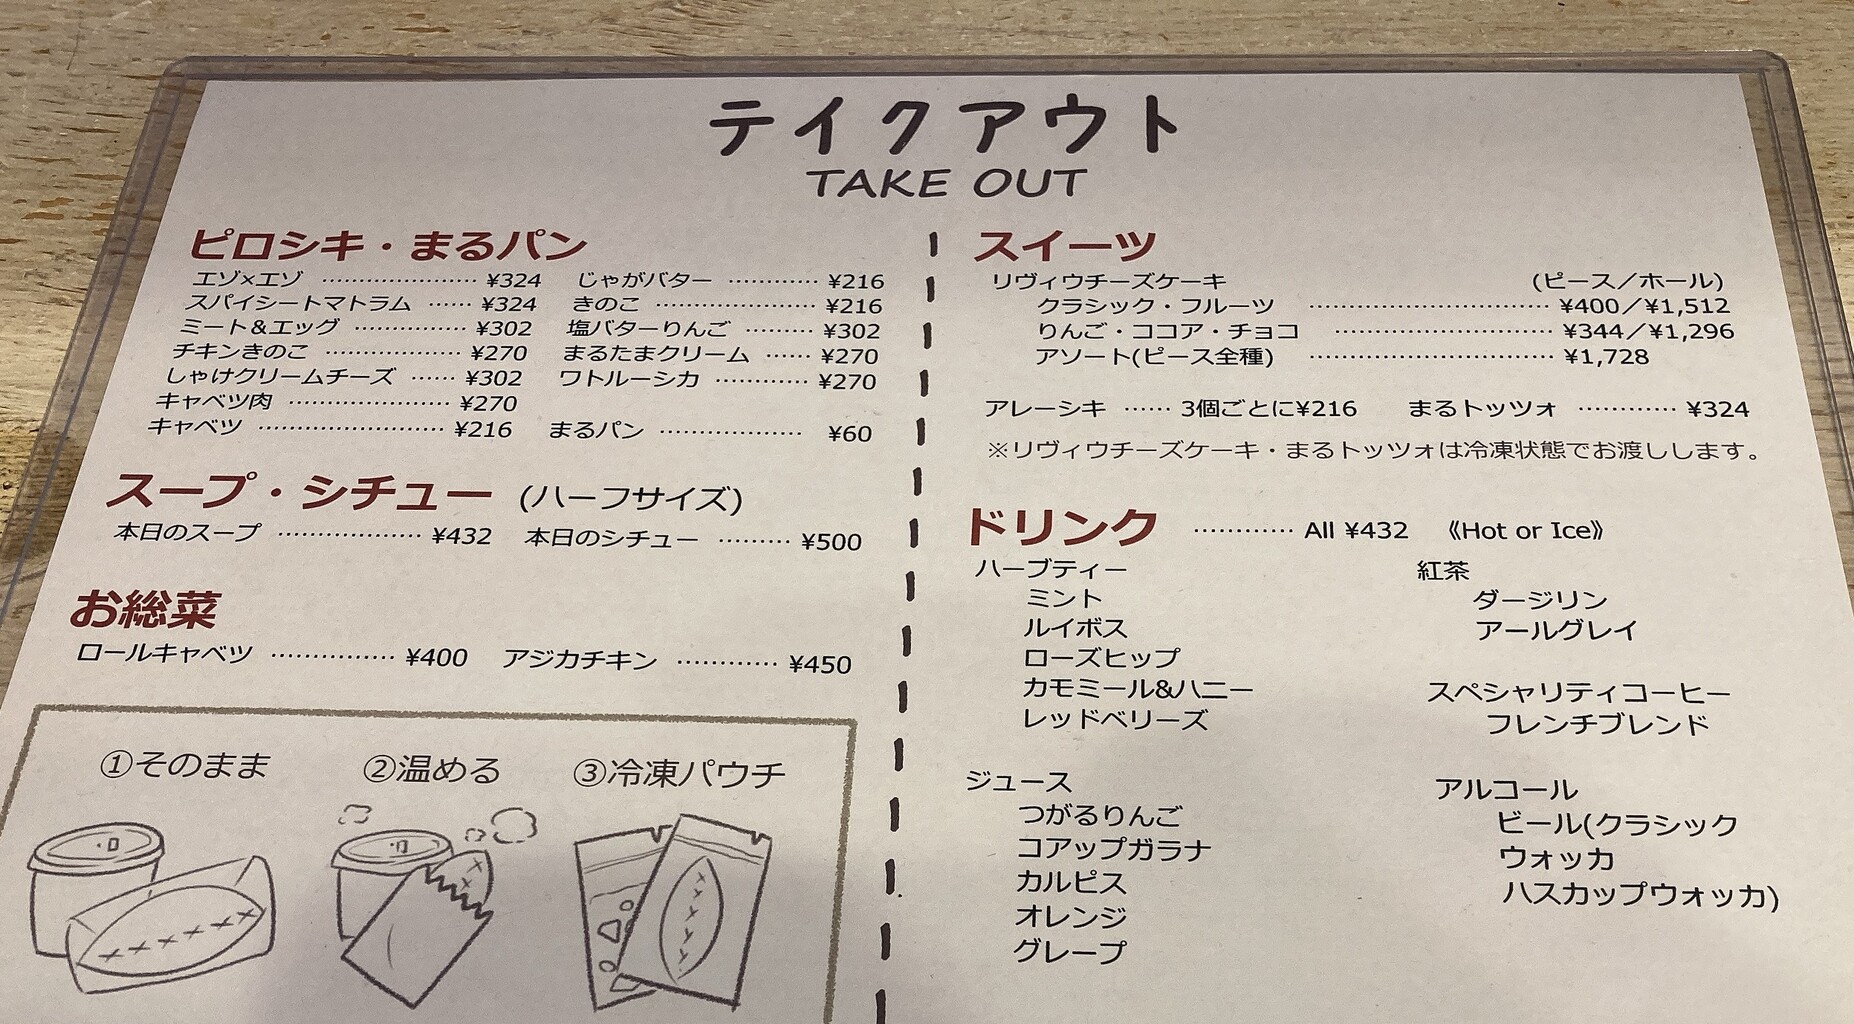 テイクアウト
TAKE OUT
ピロシキ・まるパン
エゾ×エゾ ………………… ¥324 じゃがバター ………… ¥216
スパイシートマトラム …… ¥324 きのこ ………………… ¥216
ミート＆エッグ …………… ¥302 塩バターりんご ……… ¥302
チキンきのこ ……………… ¥270 まるたまクリーム …… ¥270
しゃけクリームチーズ …… ¥302 ワトルーシカ ………… ¥270
キャベツ肉 ………………… ¥270
キャベツ …………………… ¥216 まるパン ……………… ¥60
スープ・シチュー (ハーフサイズ)
本日のスープ ……………… ¥432 本日のシチュー ……… ¥500
お総菜
ロールキャベツ …………… ¥400 アジカチキン ………… ¥450
①そのまま ②温める ③冷凍パウチ
スイーツ
リヴィウチーズケーキ (ピース／ホール)
クラシック・フルーツ ………………………… ¥400／¥1,512
りんご・ココア・チョコ ……………………… ¥344／¥1,296
アソート(ピース全種) ………………………… ¥1,728
アレーシキ …… 3個ごとに¥216 まるトッツォ ………… ¥324
※リヴィウチーズケーキ・まるトッツォは冷凍状態でお渡しします。
ドリンク ………… All ¥432 《Hot or Ice》
ハーブティー
ミント
ルイボス
ローズヒップ
カモミール&ハニー
レッドベリーズ
ジュース
つがるりんご
コアップガラナ
カルピス
オレンジ
グレープ
紅茶
ダージリン
アールグレイ
スペシャリティコーヒー
フレンチブレンド
アルコール
ビール(クラシック
ウォッカ
ハスカップウォッカ)